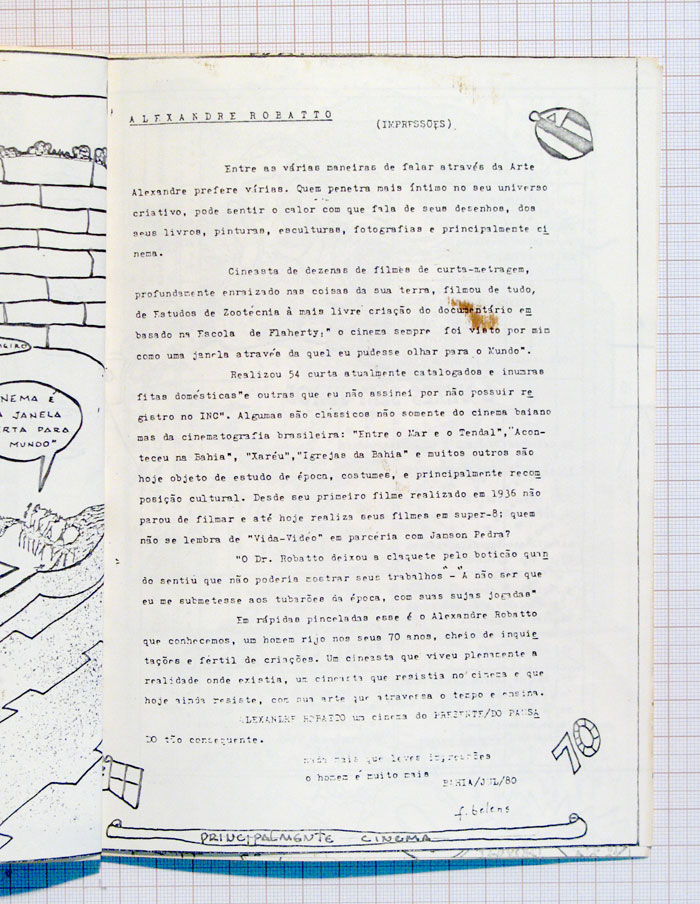 ALEXANDRE ROBATTO
(IMPRESSÕES)
Entre as várias maneiras de falar através da Arte
Alexandre prefere várias. Quem penetra mais íntimo no seu universo
criativo, pode sentir o calor com que fala de seus desenhos, dos
seus livros, pinturas, esculturas, fotografias e principalmente ci
nema.
Cineasta de dezenas de filmes de curta-metragem,
profundamente enraizado nas coisas da sua terra, filmou de tudo,
de Estudos de Zootécnia à mais livre criação do documentário em
basado na Escola de Flaherty:" o cinema sempre foi visto por mim
como uma janela através da quel eu pudesse olhar para o Mundo".
Realizou 54 curta atualmente catalogados e inumras
fitas domésticas"e outras que eu não assinei por não possuir re
gistro no INC". Algumas são clássicos não somente do cinema baiano
mas da cinematografia brasileira: "Entre o Mar e o Tendal","Acon-
teceu na Bahia", "Xaréu","Igrejas da Bahia" e muitos outros são
hoje objeto de estudo de época, costumes, e principalmente recom
posição cultural. Desde seu primeiro filme realizado em 1936 não
parou de filmar e até hoje realiza seus filmes em super-8; quem
não se lembra de "Vida-Vidéo" em parceria com Jamson Pedra?
"O Dr. Robatto deixou a claquete pelo boticão quan
do sentiu que não poderia mostrar seus trabalhos"-"A não ser que
eu me submetesse aos tubarões da época, com suas sujas jogadas"
Em rápidas pinceladas esse é o Alexandre Robatto
que conhecemos, um homem rijo nos seus 70 anos, cheio de inquie
tações e fértil de criações. Um cineasta que viveu plenamente a
realidade onde existia, um cineasta que resistia no cinema e que
hoje ainda resiste, com sua arte que atravessa o tempo e ensina.
ALEXANDRE ROBATTO um cinema do PRESENTE/DO PASSA
DO tão consequente.
nada mais que leves impressões
o homem é muito mais
BAHIA/JUL/80
f. belens
70
PRINCIPALMENTE CINEMA
NEMA É
JANELA
RTA PARA
MUNDO"